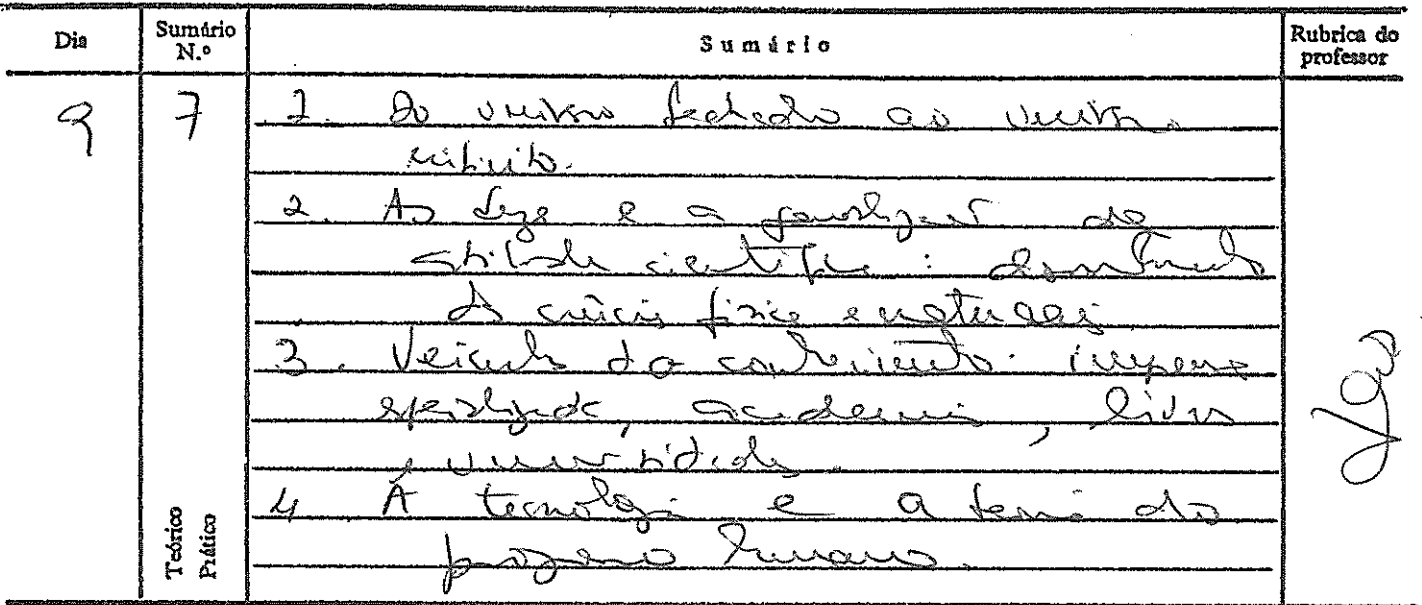 Dia
Sumário N.º
Sumário
Rubrica do professor
9
7
1. Do universo fechado ao universo
infinito.
2. As Luzes e a generalização da
atitude científica:
as ciências físicas e naturais
3. Veículos do conhecimento: imprensa
especializada, academias, livros
e universidades.
4 A tecnologia e a teoria do
progresso humano.
Teórico
Prático